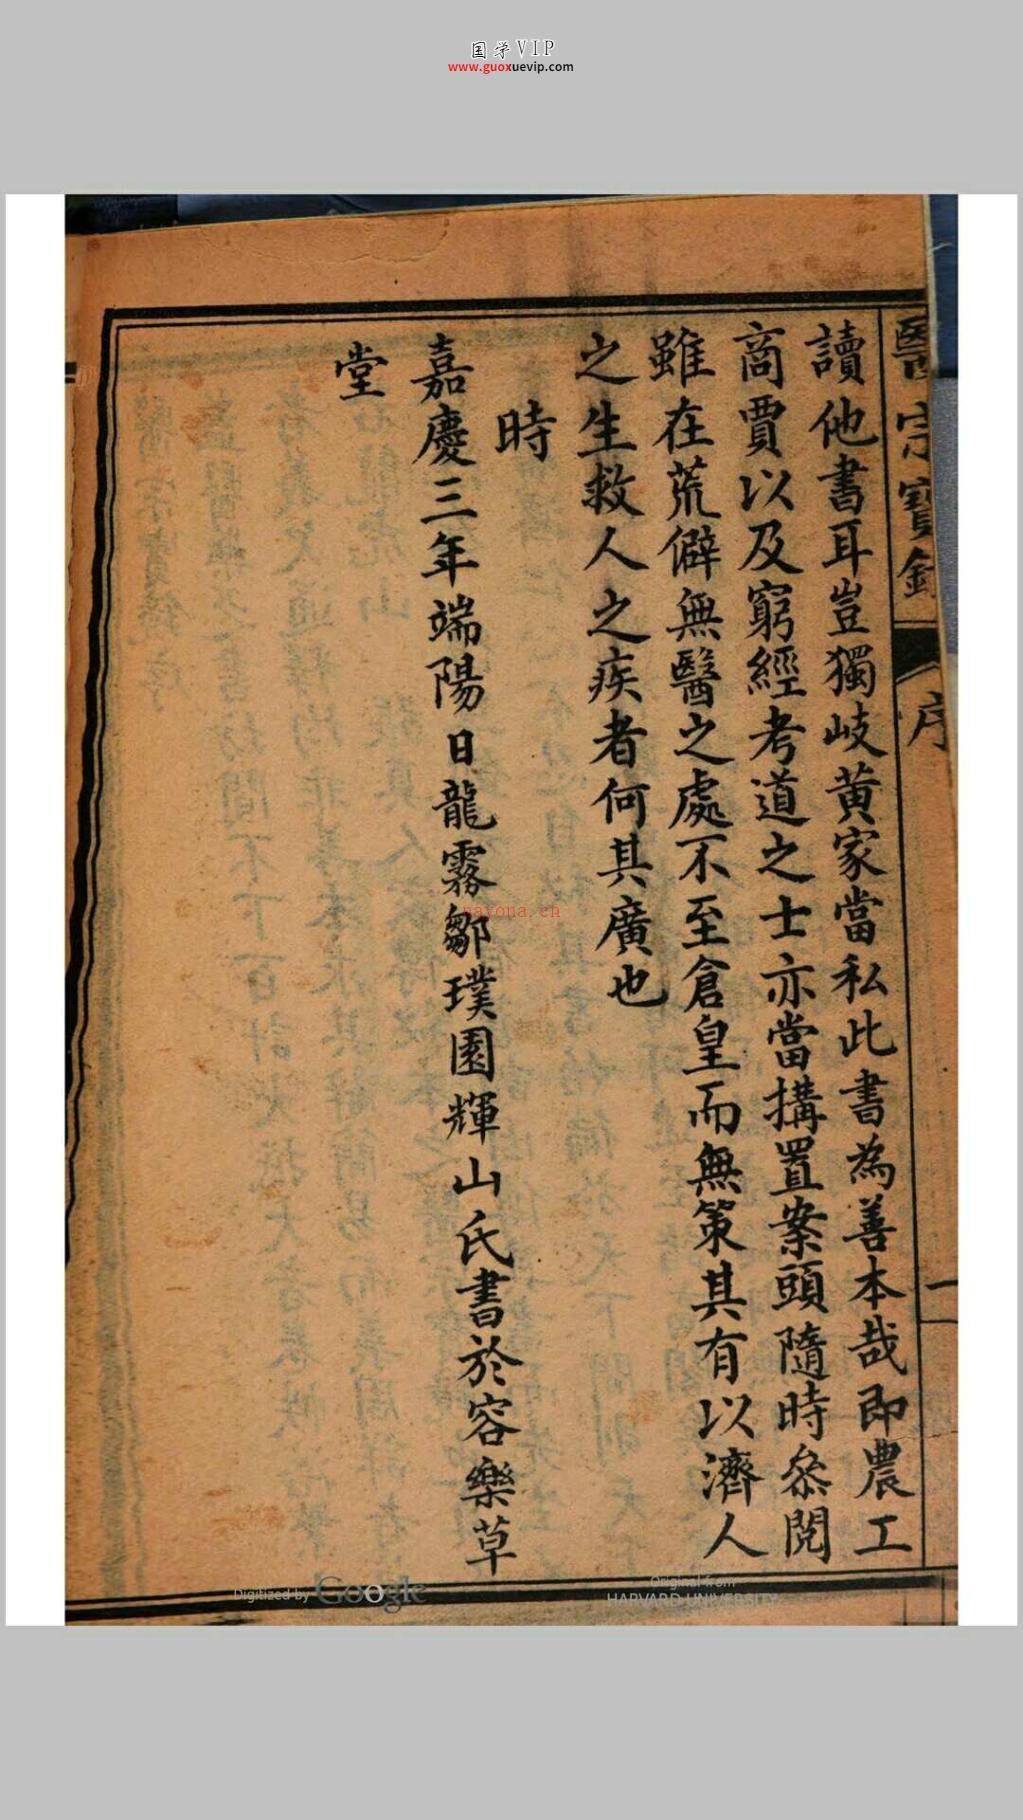 国学VIP
www.guoxuevip.com
醫宗寶鏡
序
一
讀他書耳豈獨岐黃家當私此書為善本哉即農工
商賈以及窮經考道之士亦當搆置案頭隨時叅閱
雖在荒僻無醫之處不至倉皇而無策其有以濟人
之生救人之疾者何其廣也
時
嘉慶三年端陽日龍霧鄒璞園輝山氏書於容樂草
堂
nayona.cn
Digitized by Google
Original from
HARVARD UNIVERSITY